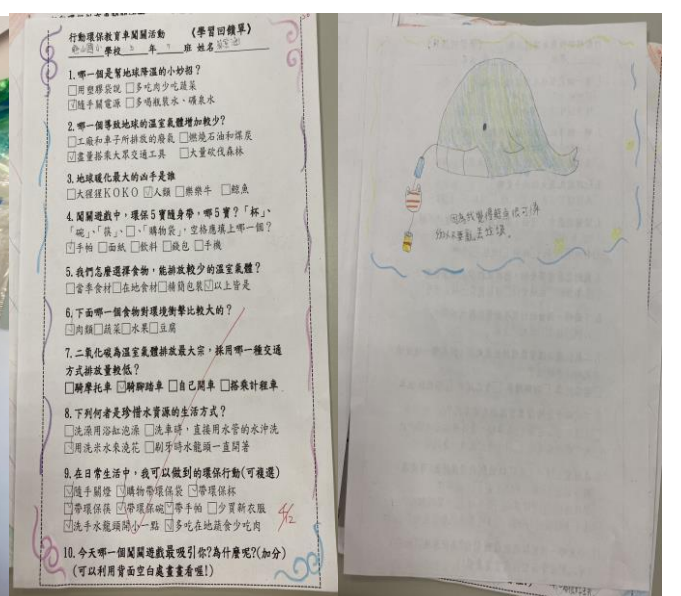 行動環保教育車闖關活動 《學習回饋單》
學校 年 班 姓名
1.哪一個是幫地球降溫的小妙招？
□用塑膠袋說 □多吃肉少吃蔬菜
☑隨手關電源 □多喝瓶裝水、礦泉水
2.哪一個導致地球的溫室氣體增加較少？
□工廠和車子所排放的廢氣 □燃燒石油和煤炭
☑盡量搭乘大眾交通工具 □大量砍伐森林
3.地球暖化最大的凶手是誰
□大猩猩KOKO ☑人類 □樂樂牛 □鯨魚
4.闖關遊戲中，環保5寶隨身帶，哪5寶？「杯」、
「碗」、「筷」、□、「購物袋」，空格應填上哪一個？
☑手帕 □面紙 □飲料 □錢包 □手機
5.我們怎麼選擇食物，能排放較少的溫室氣體？
□當季食材□在地食材□精簡包裝☑以上皆是
6.下面哪一個食物對環境衝擊比較大的？
☑肉類□蔬菜□水果□豆腐
7.二氧化碳為溫室氣體排放最大宗，採用哪一種交通
方式排放量較低？
□騎摩托車 ☑騎腳踏車 □自己開車 □搭乘計程車
8.下列何者是珍惜水資源的生活方式？
□洗澡用浴缸泡澡 □洗車時，直接用水管的水沖洗
☑用洗米水來澆花 □刷牙時水龍頭一直開著
9.在日常生活中，我可以做到的環保行動(可複選)
☑隨手關燈 ☑購物帶環保袋 ☑帶環保杯
☑帶環保筷 ☑帶環保碗☑帶手帕 □少買新衣服
☑洗手水龍頭開小一點 ☑多吃在地蔬食少吃肉
4/12
10.今天哪一個闖關遊戲最吸引你?為什麼呢?(加分)
(可以利用背面空白處畫畫看喔!)
因為我覺得鯨魚很可憐
所以不要亂丟垃圾。